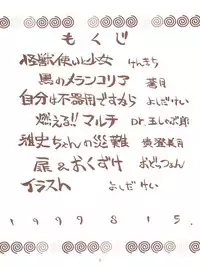 もくじ
怪獣使いと少女 けんきち
黒のメランコリア 蒼月
自分は不器用ですから よしだけい
燃える!! マルチ Dr.玉しゃぶ郎
雅史ちゃんの災難
扉&おくづけ おどつょん
イラスト よしだ けい
1999 8 15.